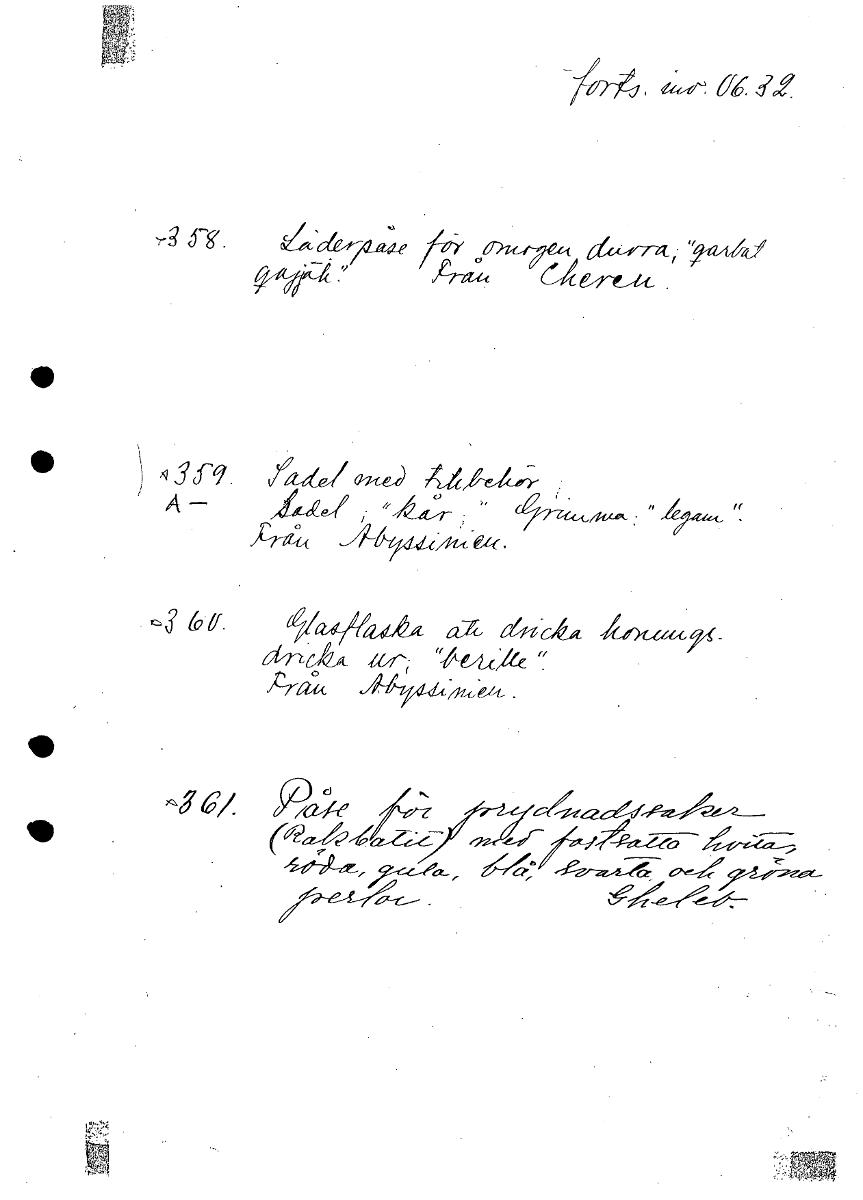 forts. inv. 06.32.
358. Läderpåse för omogen durra; "garbat
gajjāk". Från Cheren.
359. Sadel med tillbehör;
A – Sadel; "kår;" Grimma; "legam".
Från Abyssinien.
360. Glasflaska att dricka honungs-
dricka ur; "berille".
Från Abyssinien.
361. Påse för prydnadssaker
(Rakbatit) med fastsatta hvita,
röda, gula, blå, svarta och gröna
perlor. Gheleb.